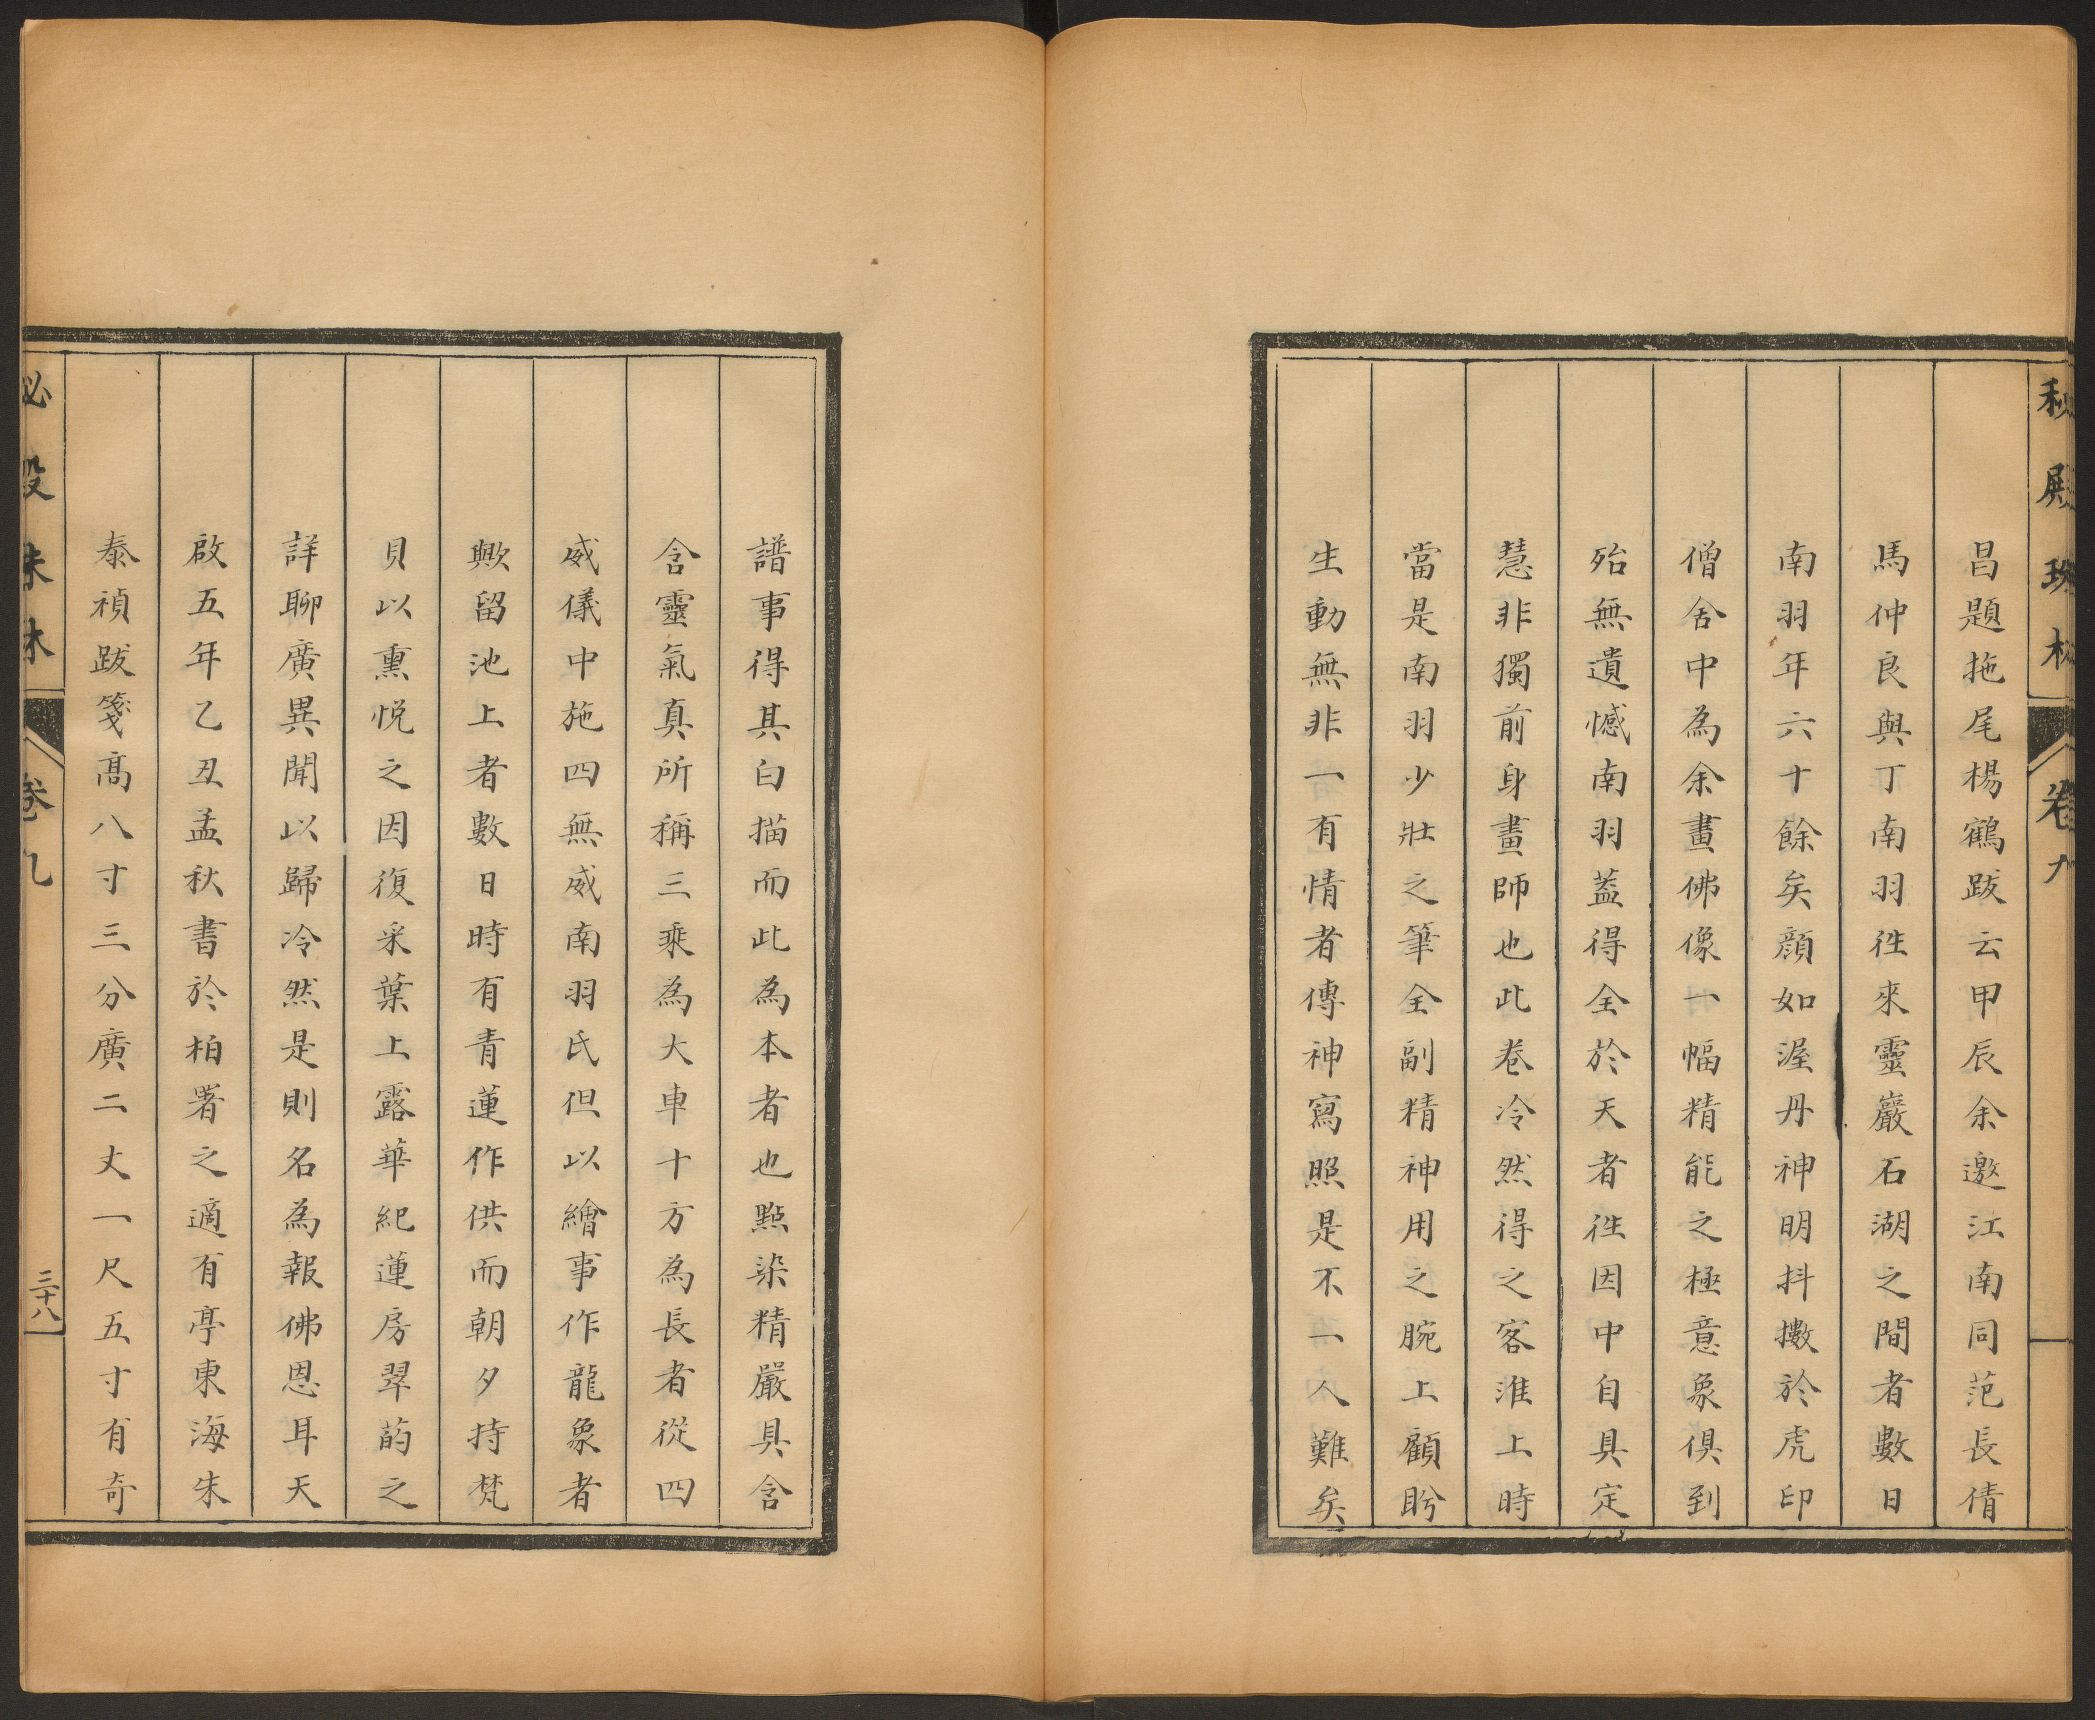 秘殿珠林
卷九
昌題拖尾楊鶴跋云甲辰余邀江南同范長倩
馬仲良與丁南羽徃來靈巖石湖之間者數日
南羽年六十餘矣顔如渥丹神明抖擻於虎印
僧舍中為余畫佛像一幅精能之極意象俱到
殆無遺憾南羽葢得全於天者徃因中自具定
慧非獨前身畫師也此卷冷然得之客淮上時
當是南羽少壯之筆全副精神用之腕上顧盻
生動無非一有情者傳神寫照是不一人難矣
譜事得其白描而此為本者也點染精嚴具含
含靈氣真所稱三乘為大車十方為長者從四
威儀中施四無威南羽氏但以繪事作龍象者
歟留池上者數日時有青蓮作供而朝夕持梵
貝以熏悦之因復采葉上露華紀蓮房翠菂之
詳聊廣異聞以歸冷然是則名為報佛恩耳天
啟五年乙丑孟秋書於柏署之適有亭東海朱
泰禎跋箋高八寸三分廣二丈一尺五寸有奇
秘殿珠林
卷九
三十八